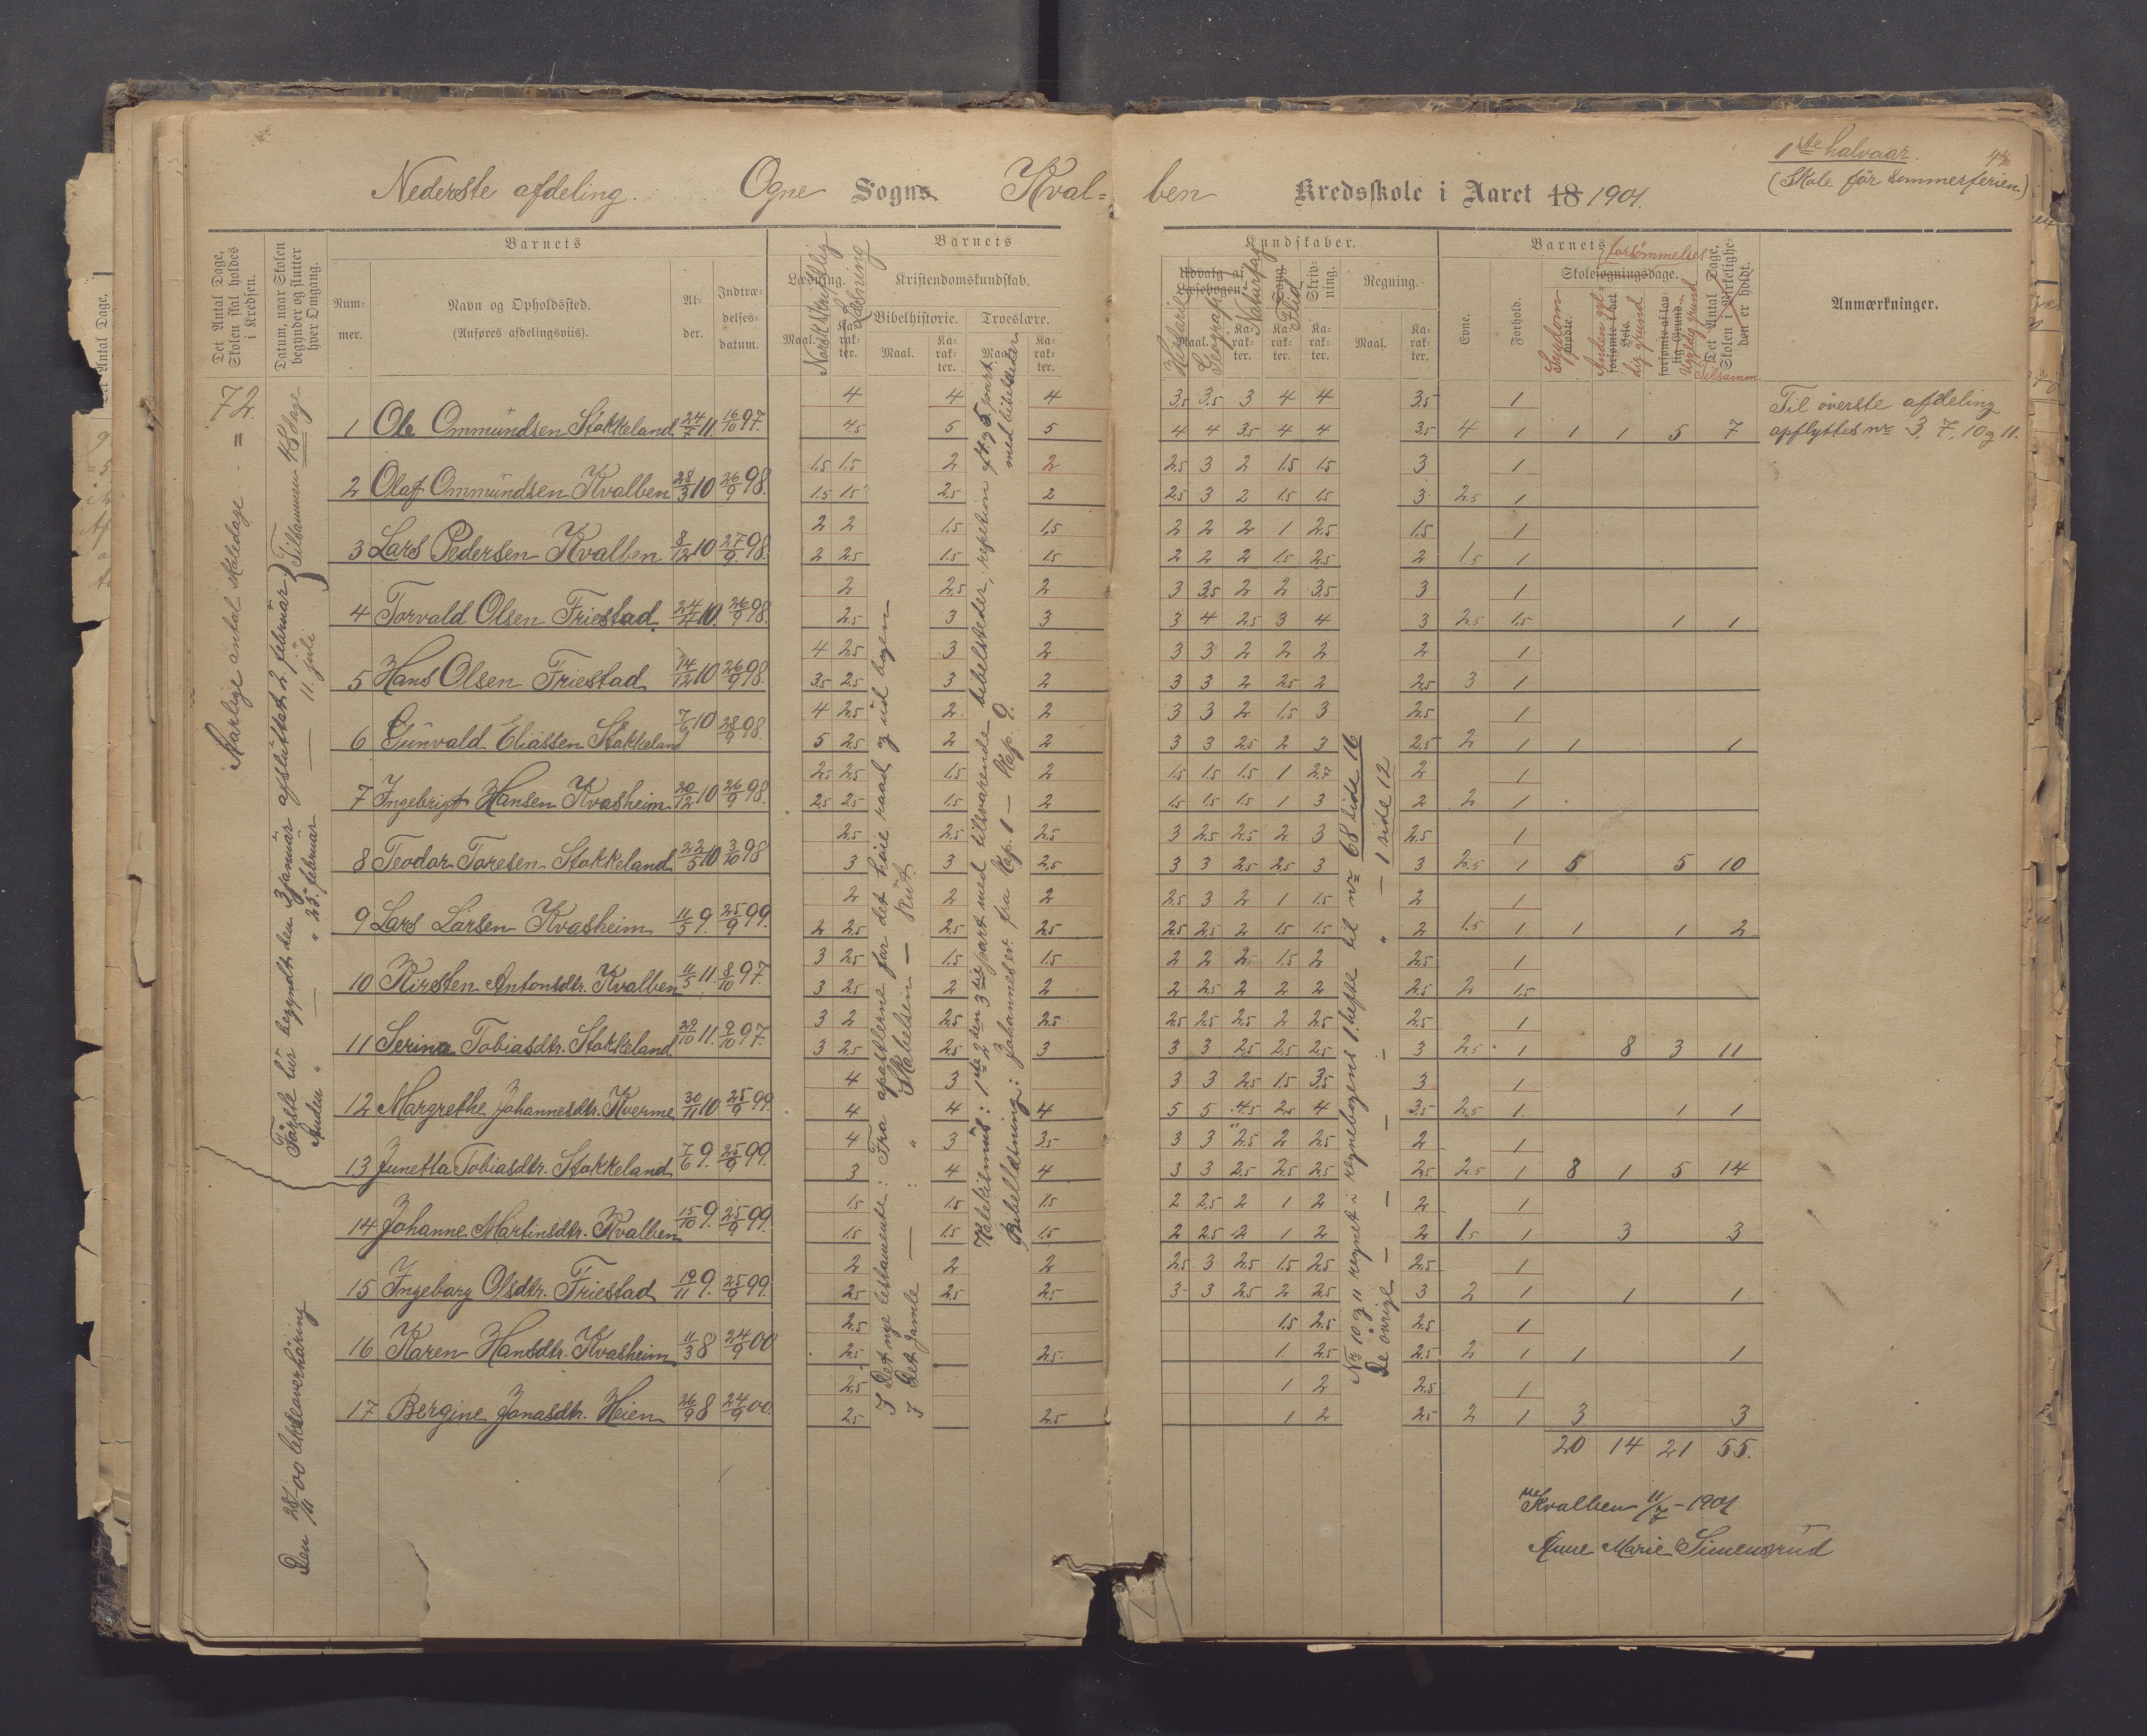 1ste halvaar. 44
(Skole før sommerferien)
Nederste afdeling. Ogne Sogns Kval= ben Kredsskole i Aaret 18 1901.
Det Antal Dage, Skolen skal holdes i Kredsen.
Datum, naar Skolen begynder og slutter hver Omgang.
Barnets
Nummer.
Navn og Opholdssted.
(Anføres afdelingsvis).
Alder.
Indtrædelsesdatum.
Barnets Kundskaber.
Læsning.
Maal. Karakter.
Norsk skriftlig
Læsning
Kristendomskundskab.
Bibelhistorie. Troeslære.
Maal. Karakter. Maal. Karakter.
Udvalg af Læsebogen.
Historie
Geografi
Naturfag
Sang
Flid
Skrivning.
Regning.
Maal. Karakter.
Barnets
Evne.
Forhold.
Skolesøgningsdage.
forsømmelser
Sygdom
mødte.
Anden gyldig grund
forsømte i det Hele.
Ugyldig grund
forsømte af lovlig Grund.
Tilsamm.
Det Antal Dage, Skolen i Virkeligheden er holdt.
Anmærkninger.
Aarlige antal skoledage = 72
Første tur begyndt den 3 januar afsluttet 2 februar
Anden " — " 25 februar — 11 juli
} Tilsammen 48 dage
Den 28/11 00 lekseaverhøring
Til överste afdeling
opflyttes nr 3, 7, 10 og 11.
4 4 4 3.5 3.5 3 4 4 3.5 1
1 Ole Ommundsen Stokkeland 24/7 11. 16/10 97. 4.5 5 5 4 4 3.5 4 4 3.5 4 1 1 1 5 7
1.5 1.5 2 2 2.5 3 2 1.5 1.5 3 1
2 Olaf Ommundsen Kvalben 28/3 10 26/9 98. 1.5 1.5 2.5 2 2.5 3 2 1.5 1.5 3 2.5 1
2 2 1.5 1.5 2 2 2 1 2.5 1.5 1
3 Lars Pedersen Kvalben 8/12 10 27/9 98. 2 2.5 1.5 1.5 2 2 2 1.5 2.5 2 1.5 1
2 2.5 2 3 3.5 2 2 3.5 3 1
4 Torvald Olsen Friestad 24/11 10. 26/9 98. 2.5 3 3 3 4 2.5 3 4 3 2.5 1.5 1 1
4 2.5 3 2 3 3 2 2 2 2 1
5 Hans Olsen Friestad 14/12 10 26/9 98. 3.5 2.5 3 2 3 3 2 2.5 2 2.5 3 1
4 2.5 2 2 3 3 2 1.5 3 2.5 1
6 Gunvald Eliassen Stokkeland 7/6 10 28/9 98. 5 2.5 2 2 3 3 2.5 2 3 2.5 2 1 1 1
2.5 2.5 1.5 2 1.5 1.5 1.5 1 2.7 2 1
7 Ingebrigt Hansen Kvasheim 20/12 10 26/9 98. 2.5 2.5 1.5 2 1.5 1.5 1.5 1 3 2 2 1
2.5 2.5 2.5 3 2.5 2.5 2 3 2.5 1
8 Teodor Toresen Stokkeland 22/5 10 3/10 98 3 3 2.5 3 3 2.5 2.5 3 3 2.5 1 5 5 10
2 2 2 2.5 3 2 1 1.5 2 1
9 Lars Larsen Kvasheim 11/5 9. 25/9 99. 2 2.5 2.5 2.5 2.5 2.5 2 1.5 1.5 2 1.5 1 1 1 2
3 2.5 1.5 1.5 2 2 2 1.5 2 2.5 1
10 Kirsten Antonsdtr. Kvalben 11/5 11. 8/10 97. 3 2.5 2 2 2 2.5 2 2 2 2.5 2 1.5
3 2 2.5 2.5 2.5 2.5 2.5 2 2.5 2.5 1
11 Serina Tobiasdtr. Stokkeland 29/10 11. 9/10 97. 3 2.5 2.5 3 3 3 2.5 2.5 2.5 3 2.5 1 8 3 11
4 3 3 3 2.5 1.5 3.5 3 1
12 Margrethe Johannesdtr. Kverme 30/11 10 25/9 99. 4 4 4 5 5 4.5 2.5 4 3.5 2.5 1 1 1
4 3 3.5 3 3 2.5 2 2.5 2 1
13 Junetta Tobiasdtr. Stokkeland 7/6 9. 25/9 99. 3 4 4 3 3 2.5 2.5 2.5 2.5 2.5 1 8 1 5 14
1.5 1.5 1.5 2 2.5 2 1 2 2 1
14 Johanne Martinsdtr. Kvalben 15/10 9. 25/9 99. 1.5 1.5 1.5 2 2.5 2 1 2 2 1.5 1 3 3
2 2 2 2.5 3 2.5 1.5 2.5 2.5 1
15 Ingeborg Olsdtr. Friestad 19/11 9. 25/9 99. 2.5 2.5 2.5 3 3 2.5 2 2.5 3 2 1 1 1
2.5 1.5 2.5 2.5 1
16 Karen Hansdtr. Kvasheim 11/3 8 24/9 00 2.5 2.5 1. 2.5 2.5 2 1 1 1
2.5 1 2 2.5 1
17 Bergine Jonasdtr. Heien 26/9 8 24/9 00. 2.5 2.5 1 2 2.5 2 1 3 3
20 14 21 55.
I Det nye testamente: Fra apostlerne for det høie raad og ud bogen
I Det gamle — " : Skabelsen — Rut
Katekismus: 1ste og den 3die part med tilsvarende bibelsteder, repetion af og 5 part med bibelsteder
Bibellæsning: Johannes ev. fra Kap. 1 — Kap. 9.
Nr 10 og 11 regnet i regnebogens 1. hefte til nr 68 side 16
De øvrige — — — — " — 1 side 12
Kvalben 11/7 - 1901
Anne Marie Simensrud